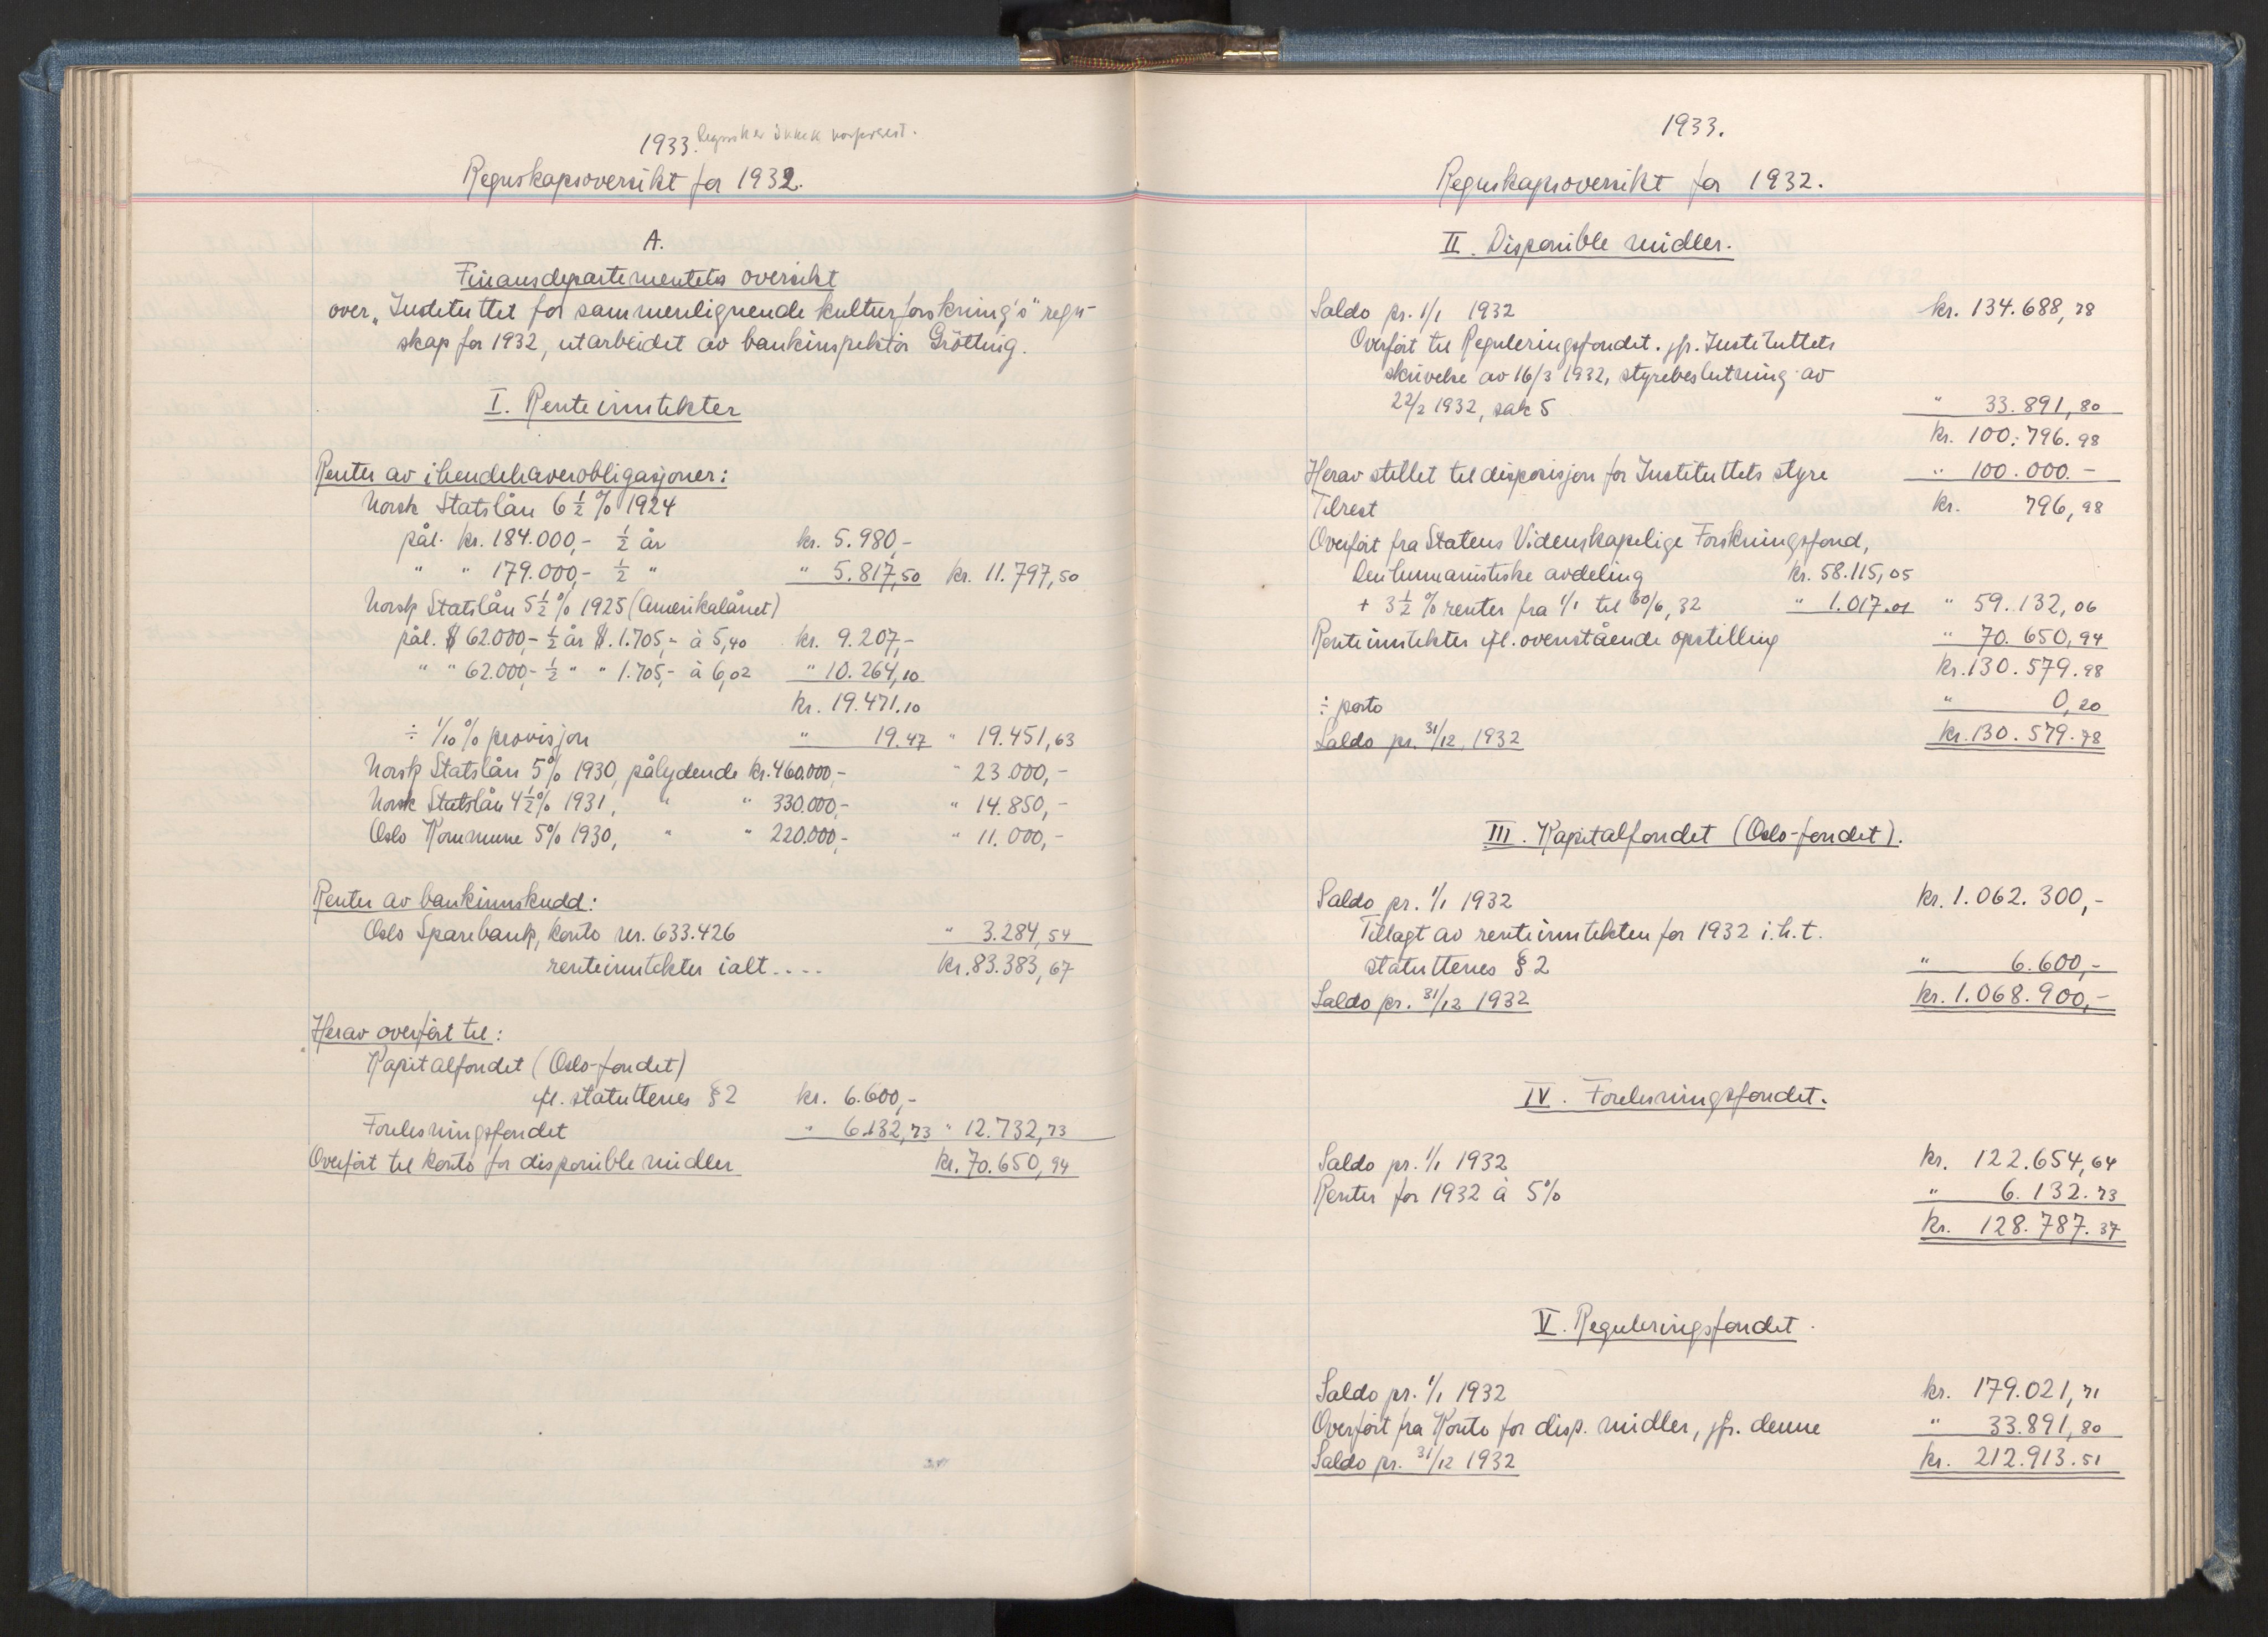 1933.
Regnskapsoversikt for 1932.
A.
Finansdepartementets oversikt
over „Instituttet for sammenlignende kulturforskning's" regn-
skap for 1932, utarbeidet av bankinspektør Grötting.
I. Renteinntekter
Renter av ihendehaverobligasjoner:
Norsk Statslån 6 1/2 % 1924
pål. kr. 184.000,- 1/2 år kr. 5.980,-
" " 179.000,- 1/2 " " 5.817,50 kr. 11.797,50
Norsk Statslån 5 1/2 % 1925 (Amerikalånet)
pål. $ 62.000,- 1/2 år $. 1.705,- à 5,40 kr. 9.207,-
" " 62.000,- 1/2 " " 1.705,- à 6,02 " 10.264,10
kr. 19.471.10
÷ 1/10 % provisjon " 19.47 " 19.451,63
Norsk Statslån 5% 1930, pålydende kr. 460.000,- " 23.000,-
Norsk Statslån 4 1/2 % 1931, " " 330.000,- " 14.850,-
Oslo Kommune 5% 1930, " " 220.000,- " 11.000,-
Renter av bankinnskudd:
Oslo Sparebank, konto nr. 633.426 " 3.284,54
renteinntekter ialt.... kr. 83.383,67
Herav overført til:
Kapitalfondet (Oslo-fondet)
ifl. statuttenes § 2 kr. 6.600,-
Forelesningsfondet " 6.132,73 " 12.732,73
Overført til konto for disponible midler kr. 70.650,94
1933.
Regnskapsoversikt for 1932.
II. Disponible midler.
Saldo pr. 1/1 1932 kr. 134.688,78
Overført til Reguleringsfondet. jfr. Instituttets
skrivelse av 16/3 1932, styrebeslutning av
22/2 1932, sak 5 " 33.891,80
kr. 100.796.98
Herav stillet til disposisjon for Instituttets styre " 100.000.-
Tilrest kr. 796,98
Overført fra Statens Videnskapelige Forskningsfond,
Den humanistiske avdeling kr. 58.115,05
+ 3 1/2 % renter fra 1/1 til 30/6, 32 " 1.017.01 " 59.132,06
Renteinntekter ifl. ovenstående opstilling " 70.650,94
kr. 130.579.98
÷ porto " 0,20
Saldo pr. 31/12 1932 kr. 130.579.78
III. Kapitalfondet (Oslo-fondet).
Saldo pr. 1/1 1932 kr. 1.062.300,-
Tillagt av renteinntekten for 1932 i.h.t.
statuttenes § 2 " 6.600,-
Saldo pr. 31/12 1932 kr. 1.068.900,-
IV. Forelesningsfondet.
Saldo pr. 1/1 1932 kr. 122.654,64
Renter for 1932 à 5% " 6.132.73
kr. 128.787.37
V. Reguleringsfondet.
Saldo pr. 1/1 1932 kr. 179.021,71
Overført fra Konto for disp. midler, jfr. denne " 33.891,80
Saldo pr. 31/12 1932 kr. 212.913.51